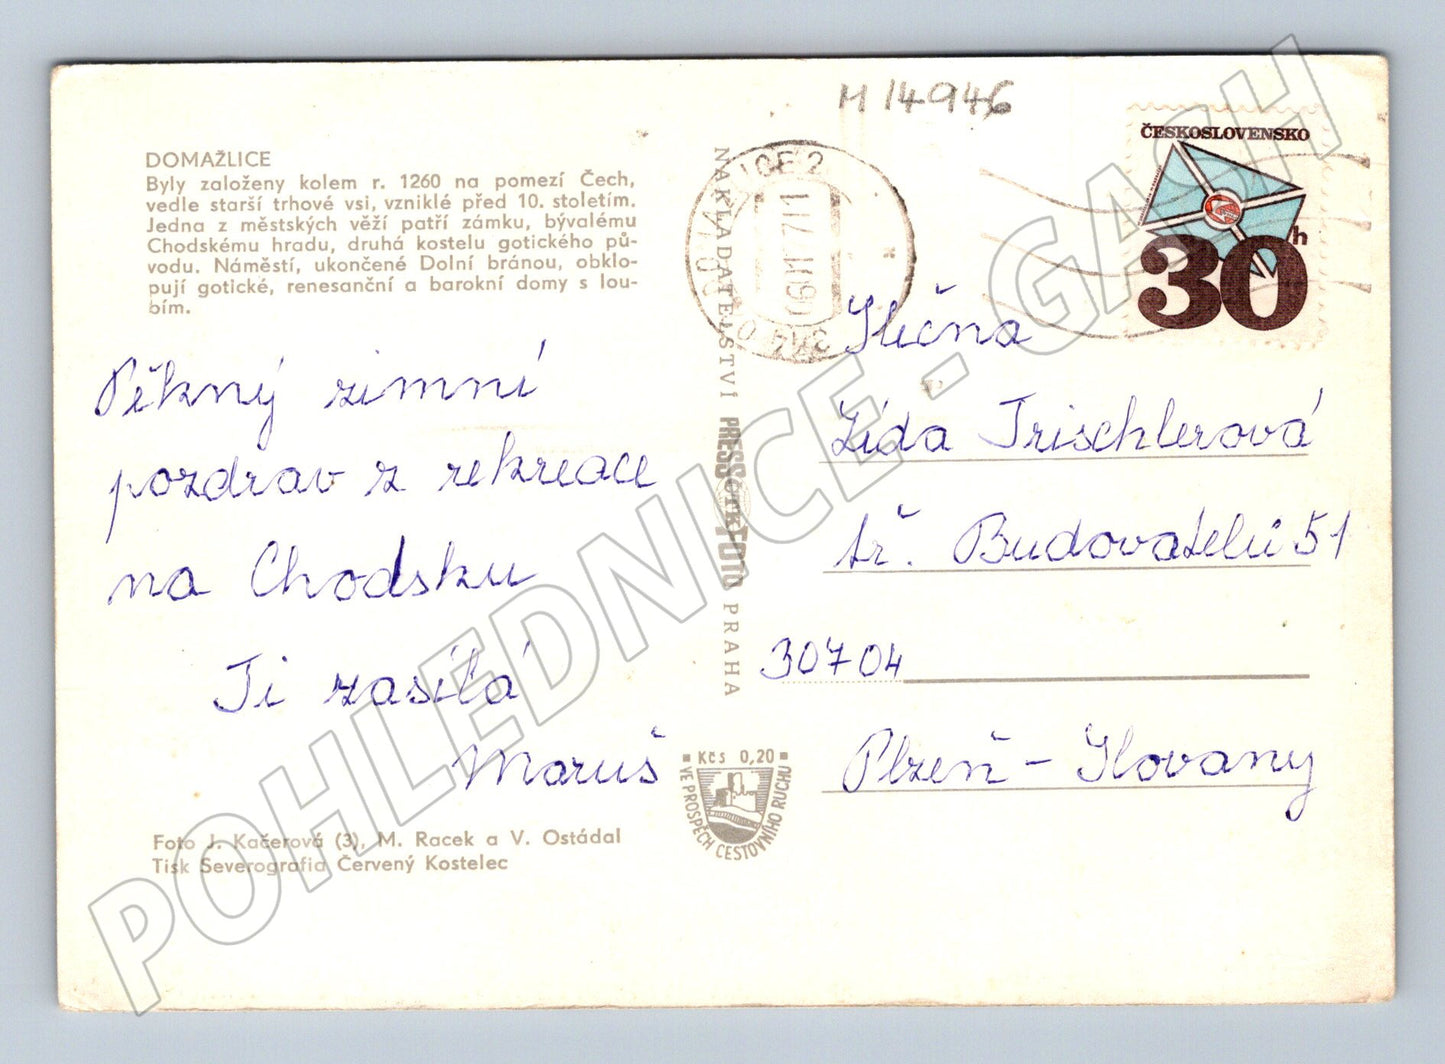 M 14946
ČESKOSLOVENSKO
30h
DOMAŽLICE
Byly založeny kolem r. 1260 na pomezí Čech,
vedle starší trhové vsi, vzniklé před 10. stoletím.
Jedna z městských věží patří zámku, bývalému
Chodskému hradu, druhá kostelu gotického pů-
vodu. Náměstí, ukončené Dolní bránou, obklo-
pují gotické, renesanční a barokní domy s lou-
bím.
Pěkný zimní
pozdrav z rekreace
na Chodsku
Ti zasílá
Maruš
Foto J. Kačerová (3), M. Racek a V. Ostádal
Tisk Severografia Červený Kostelec
NAKLADATELSTVÍ PRESSFOTO PRAHA
Kčs 0,20
VE PROSPĚCH CESTOVNÍHO RUCHU
Slečna
Lída Trischlerová
tř. Budovatelů 51
30704
Plzeň - Slovany
POHLEDNICE - GASH